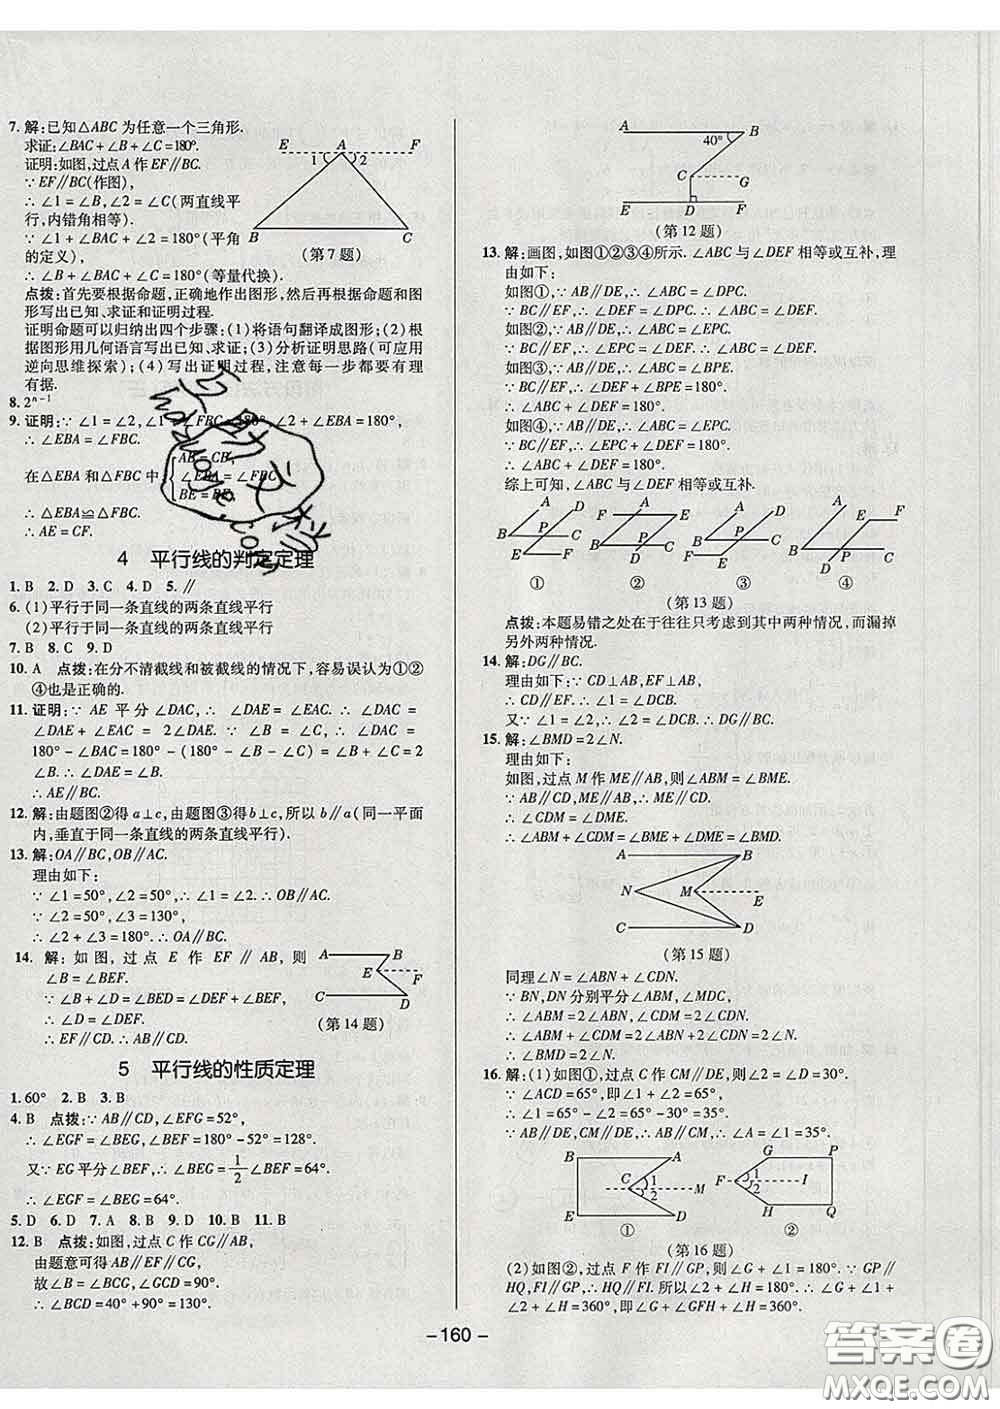 7. 解:已知△ABC 为任意一个三角形.
求证:∠BAC+∠B+∠C=180°.
证明:如图,过点 A 作 EF∥BC.
∵ EF∥BC(作图),
∴ ∠1=∠B,∠2=∠C(两直线平
行,内错角相等).
∵ ∠1+∠BAC+∠2=180°(平角
的定义),
∴ ∠B+∠BAC+∠C=180°(等量代换).
E A F
1 2
B C
(第 7 题)
点拨:首先要根据命题,正确地作出图形,然后再根据命题和图
形写出已知、求证和证明过程.
证明命题可以归纳出四个步骤:(1)将语句翻译成图形;(2)根
据图形用几何语言写出已知、求证;(3)分析证明思路(可应用
逆向思维探索);(4)写出证明过程,注意每一步都要有理
有据.
8. 2ⁿ⁻¹
9. 证明:∵ ∠1=∠2,∠1+∠FBC=180°,∠2+∠EBA=180°,
∴ ∠EBA=∠FBC.
在△EBA 和△FBC 中
AB=CB,
∠EBA=∠FBC
BE=BF
∴ △EBA≌△FBC.
∴ AE=CF.
4 平行线的判定定理
1. B 2. D 3. C 4. D 5. ∥
6. (1)平行于同一条直线的两条直线平行
(2)平行于同一条直线的两条直线平行
7. B 8. C 9. D
10. A 点拨:在分不清截线和被截线的情况下,容易误认为①②
④也是正确的.
11. 证明:∵ AE 平分∠DAC,∴ ∠DAE=∠EAC.∴ ∠DAC=
∠DAE+∠EAC=2∠DAE.∵ ∠B=∠C,∴ ∠DAC=
180°-∠BAC=180°-(180°-∠B-∠C)=∠B+∠C=2
∠B.∴ ∠DAE=∠B.
∴ AE∥BC.
12. 解:由题图②得 a⊥c,由题图③得 b⊥c,所以 b∥a(同一平面
内,垂直于同一条直线的两条直线平行).
13. 解:OA∥BC,OB∥AC.
理由如下:
∵ ∠1=50°,∠2=50°,∴ ∠1=∠2.∴ OB∥AC.
∵ ∠2=50°,∠3=130°,
∴ ∠2+∠3=180°.∴ OA∥BC.
14. 解:如图,过点 E 作 EF∥AB,则
∠B=∠BEF.
∵ ∠B+∠D=∠BED=∠DEF+∠BEF,
∴ ∠D=∠DEF.
∴ EF∥CD.∴ AB∥CD.
A B
E F
C D
(第 14 题)
5 平行线的性质定理
1. 60° 2. B 3. B
4. B 点拨:∵ AB∥CD,∠EFG=52°,
∴ ∠EGF=∠BEG,∠BEF=180°-52°=128°.
又∵ EG 平分∠BEF,∴ ∠BEG=1/2∠BEF=64°.
∴ ∠EGF=∠BEG=64°.
5. D 6. D 7. A 8. B 9. D 10. B 11. B
12. B 点拨:如图,过点 C 作 CG∥AB,
由题意可得 AB∥EF∥CG,
故∠B=∠BCG,∠GCD=90°.
∴ ∠BCD=40°+90°=130°.
A B
40°
C G
E D F
(第 12 题)
13. 解:画图,如图①②③④所示. ∠ABC 与∠DEF 相等或互补,理
由如下:
如图①,∵ AB∥DE,∴ ∠ABC=∠DPC.
∵ BC∥EF,∴ ∠DEF=∠DPC.∴ ∠ABC=∠DEF.
如图②,∵ AB∥DE,∴ ∠ABC=∠EPC.
∵ BC∥EF,∴ ∠DEF=∠EPC.∴ ∠ABC=∠DEF.
如图③,∵ AB∥DE,∴ ∠ABC=∠BPE.
∵ BC∥EF,∴ ∠BPE+∠DEF=180°.
∴ ∠ABC+∠DEF=180°.
如图④,∵ AB∥DE,∴ ∠ABC=∠EPC.
∵ BC∥EF,∴ ∠EPC+∠DEF=180°.
∴ ∠ABC+∠DEF=180°.
综上可知,∠ABC 与∠DEF 相等或互补.
A D P B C E F
①
F A E P B D C
②
A D B P C F E
③
A E F B P C D
④
(第 13 题)
点拨:本题易错之处在于往往只考虑到其中两种情况,而漏掉
另外两种情况.
14. 解:DG∥BC.
理由如下:∵ CD⊥AB,EF⊥AB,
∴ CD∥EF.∴ ∠2=∠DCB.
又∵ ∠1=∠2,∴ ∠1=∠DCB.∴ DG∥BC.
15. 解:∠BMD=2∠N.
理由如下:
如图,过点 M 作 ME∥AB,则∠ABM=∠BME.
∵ AB∥CD,∴ CD∥ME.
∴ ∠CDM=∠DME.
∴ ∠ABM+∠CDM=∠BME+∠DME=∠BMD.
A B
N M E
C D
(第 15 题)
同理∠N=∠ABN+∠CDN.
∵ BN,DN 分别平分∠ABM,∠MDC,
∴ ∠ABM=2∠ABN,∠CDM=2∠CDN.
∴ ∠ABM+∠CDM=2∠ABN+2∠CDN=2∠N.
∴ ∠BMD=2∠N.
16. 解:(1)如图①,过点 C 作 CM∥DE,则∠2=∠D=30°.
∵ ∠ACD=65°,即∠1+∠2=65°,
∴ ∠1=65°-∠2=65°-30°=35°.
∵ AB∥DE,CM∥DE,∴ CM∥AB.∴ ∠A=∠1=35°.
B A
C 1 2 M
E D
①
G P
F 1 2 I
H Q
②
(第 16 题)
(2)如图②,过点 F 作 FI∥GP,则∠G+∠1=180°.∵ GP∥
HQ,FI∥GP,∴ HQ∥FI.所以∠2+∠H=180°.∴ ∠G+∠1+
∠2+∠H=360°,即∠G+∠GFH+∠H=360°.
-160-
答案圈
MXQE.COM